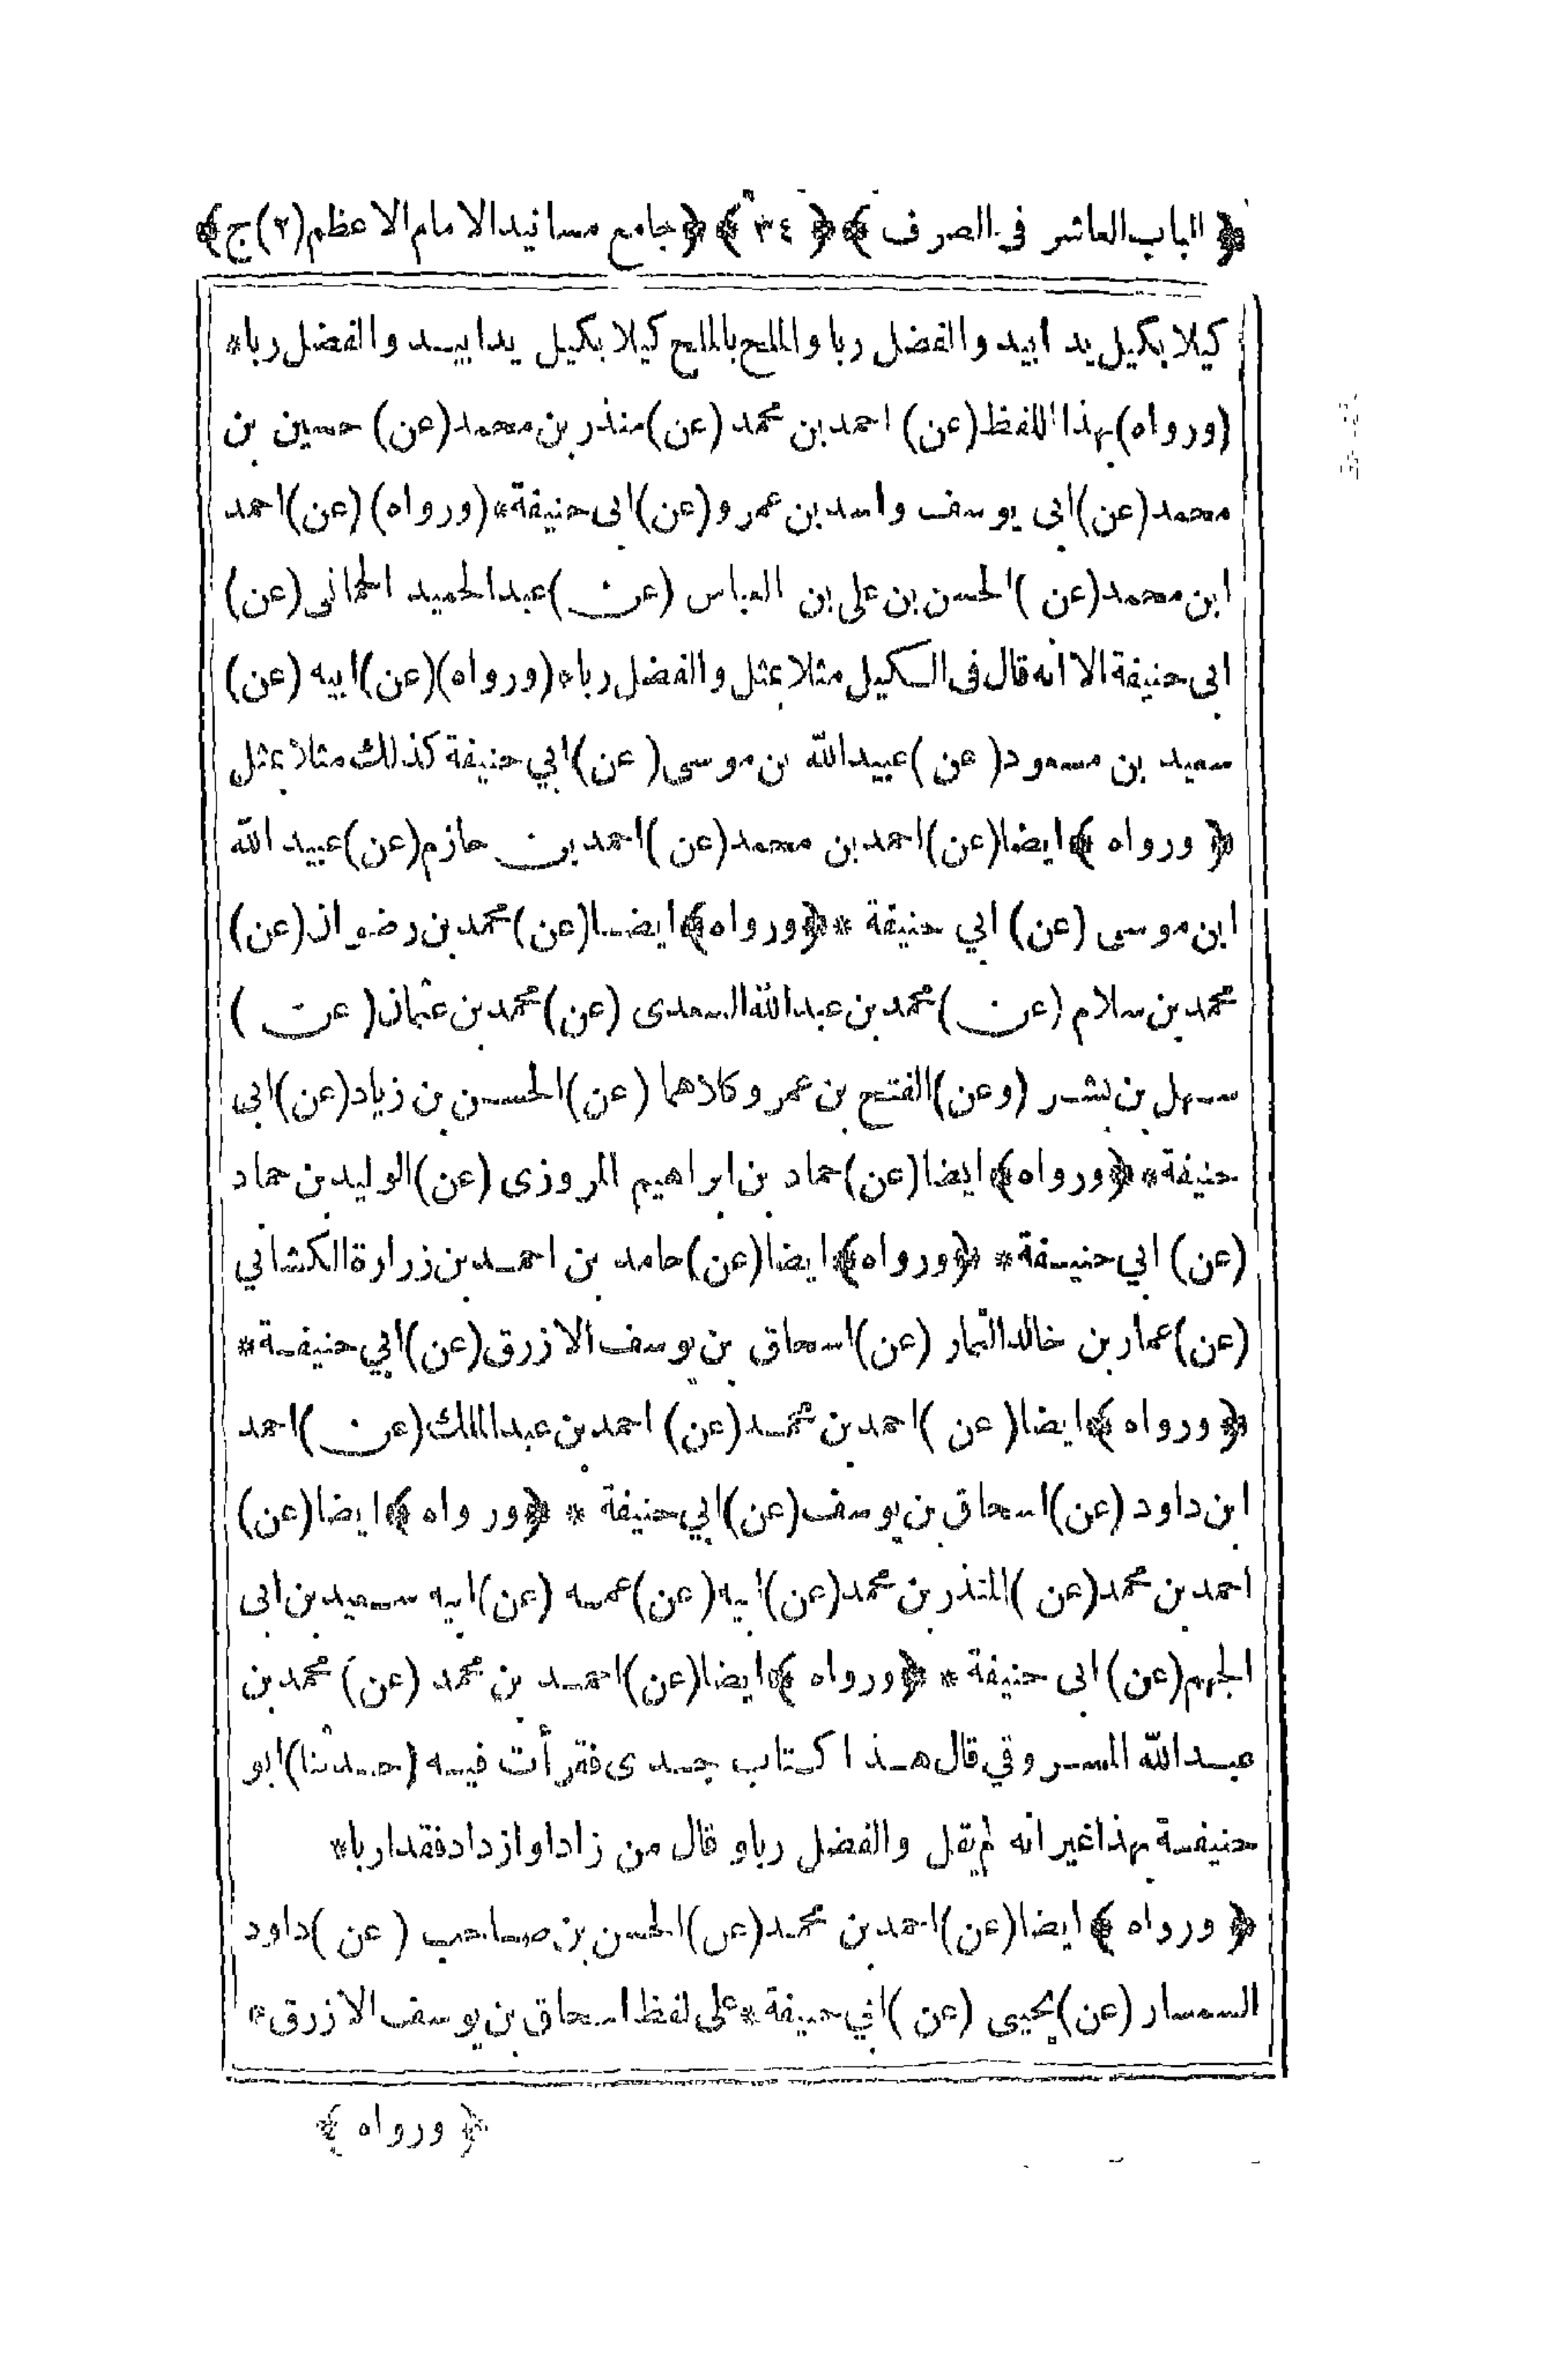 ﴿ الباب العاشر فى الصرف ﴾ ﴿ ٣٤ ﴾ ﴿ جامع مسانيد الامام الاعظم (٢) ج ﴾
كيلا بكيل يد ابيد والفضل ربا والملح بالملح كيلا بكيل يدا بيد والفضل ربا*
(ورواه) بهذا اللفظ (عن) احمد بن محمد (عن) منذر بن محمد (عن) حسين بن
محمد (عن) ابى يوسف واسد بن عمرو (عن) ابى حنيفة * (ورواه) (عن) احمد
ابن محمد (عن) الحسن بن على بن العباس (عن) عبد الحميد الحمانى (عن)
ابى حنيفة الا انه قال فى الكيل مثلا بمثل والفضل ربا * (ورواه) (عن) ابيه (عن)
سعيد بن مسعود (عن) عبيد الله بن موسى (عن) ابي حنيفة كذلك مثلا بمثل
﴿ ورواه ﴾ ايضا (عن) احمد بن محمد (عن) احمد بن حازم (عن) عبيد الله
ابن موسى (عن) ابي حنيفة * ﴿ ورواه ﴾ ايضا (عن) محمد بن رضوان (عن)
محمد بن سلام (عن) محمد بن عبد الله السعدى (عن) محمد بن عثمان (عن)
سهل بن بشر (وعن) الفتح بن عمرو كلاهما (عن) الحسن بن زياد (عن) ابى
حنيفة * ﴿ ورواه ﴾ ايضا (عن) حماد بن ابراهيم المروزى (عن) الوليد بن حماد
(عن) ابي حنيفة * ﴿ ورواه ﴾ ايضا (عن) حامد بن احمد بن زرارة الكشاني
(عن) عمار بن خالد التمار (عن) اسحاق بن يوسف الازرق (عن) ابي حنيفة *
﴿ ورواه ﴾ ايضا (عن) احمد بن محمد (عن) احمد بن عبد الملك (عن) احمد
ابن داود (عن) اسحاق بن يوسف (عن) ابي حنيفة * ﴿ ورواه ﴾ ايضا (عن)
احمد بن محمد (عن) المنذر بن محمد (عن) ابيه (عن) عمه (عن) ابيه سعيد بن ابى
الجهم (عن) ابى حنيفة * ﴿ ورواه ﴾ ايضا (عن) احمد بن محمد (عن) محمد بن
عبد الله المسروقي قال هذا كتاب جدى فقرأت فيه (حدثنا) ابو
حنيفة بهذا غير انه لم يقل والفضل ربا و قال من زاد او ازداد فقد اربا *
﴿ ورواه ﴾ ايضا (عن) احمد بن محمد (عن) الحسن بن صاحب (عن) داود
السمسار (عن) يحيى (عن) ابي حنيفة * على لفظ اسحاق بن يوسف الازرق *
﴿ ورواه ﴾